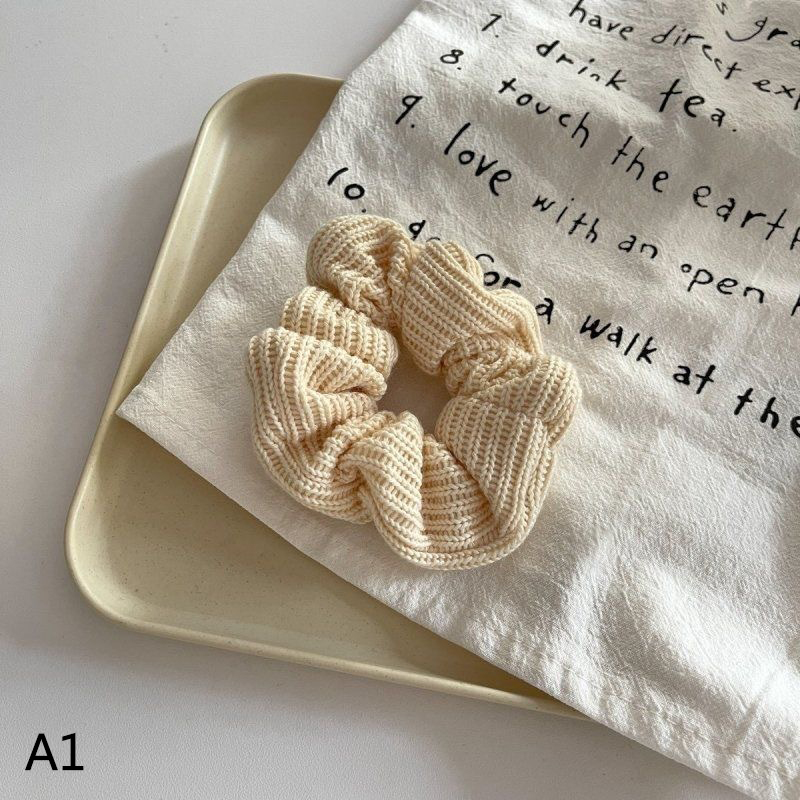 have direct
7. drink tea.
8. touch the earth
9. love with an open
10. for a walk at the
A1